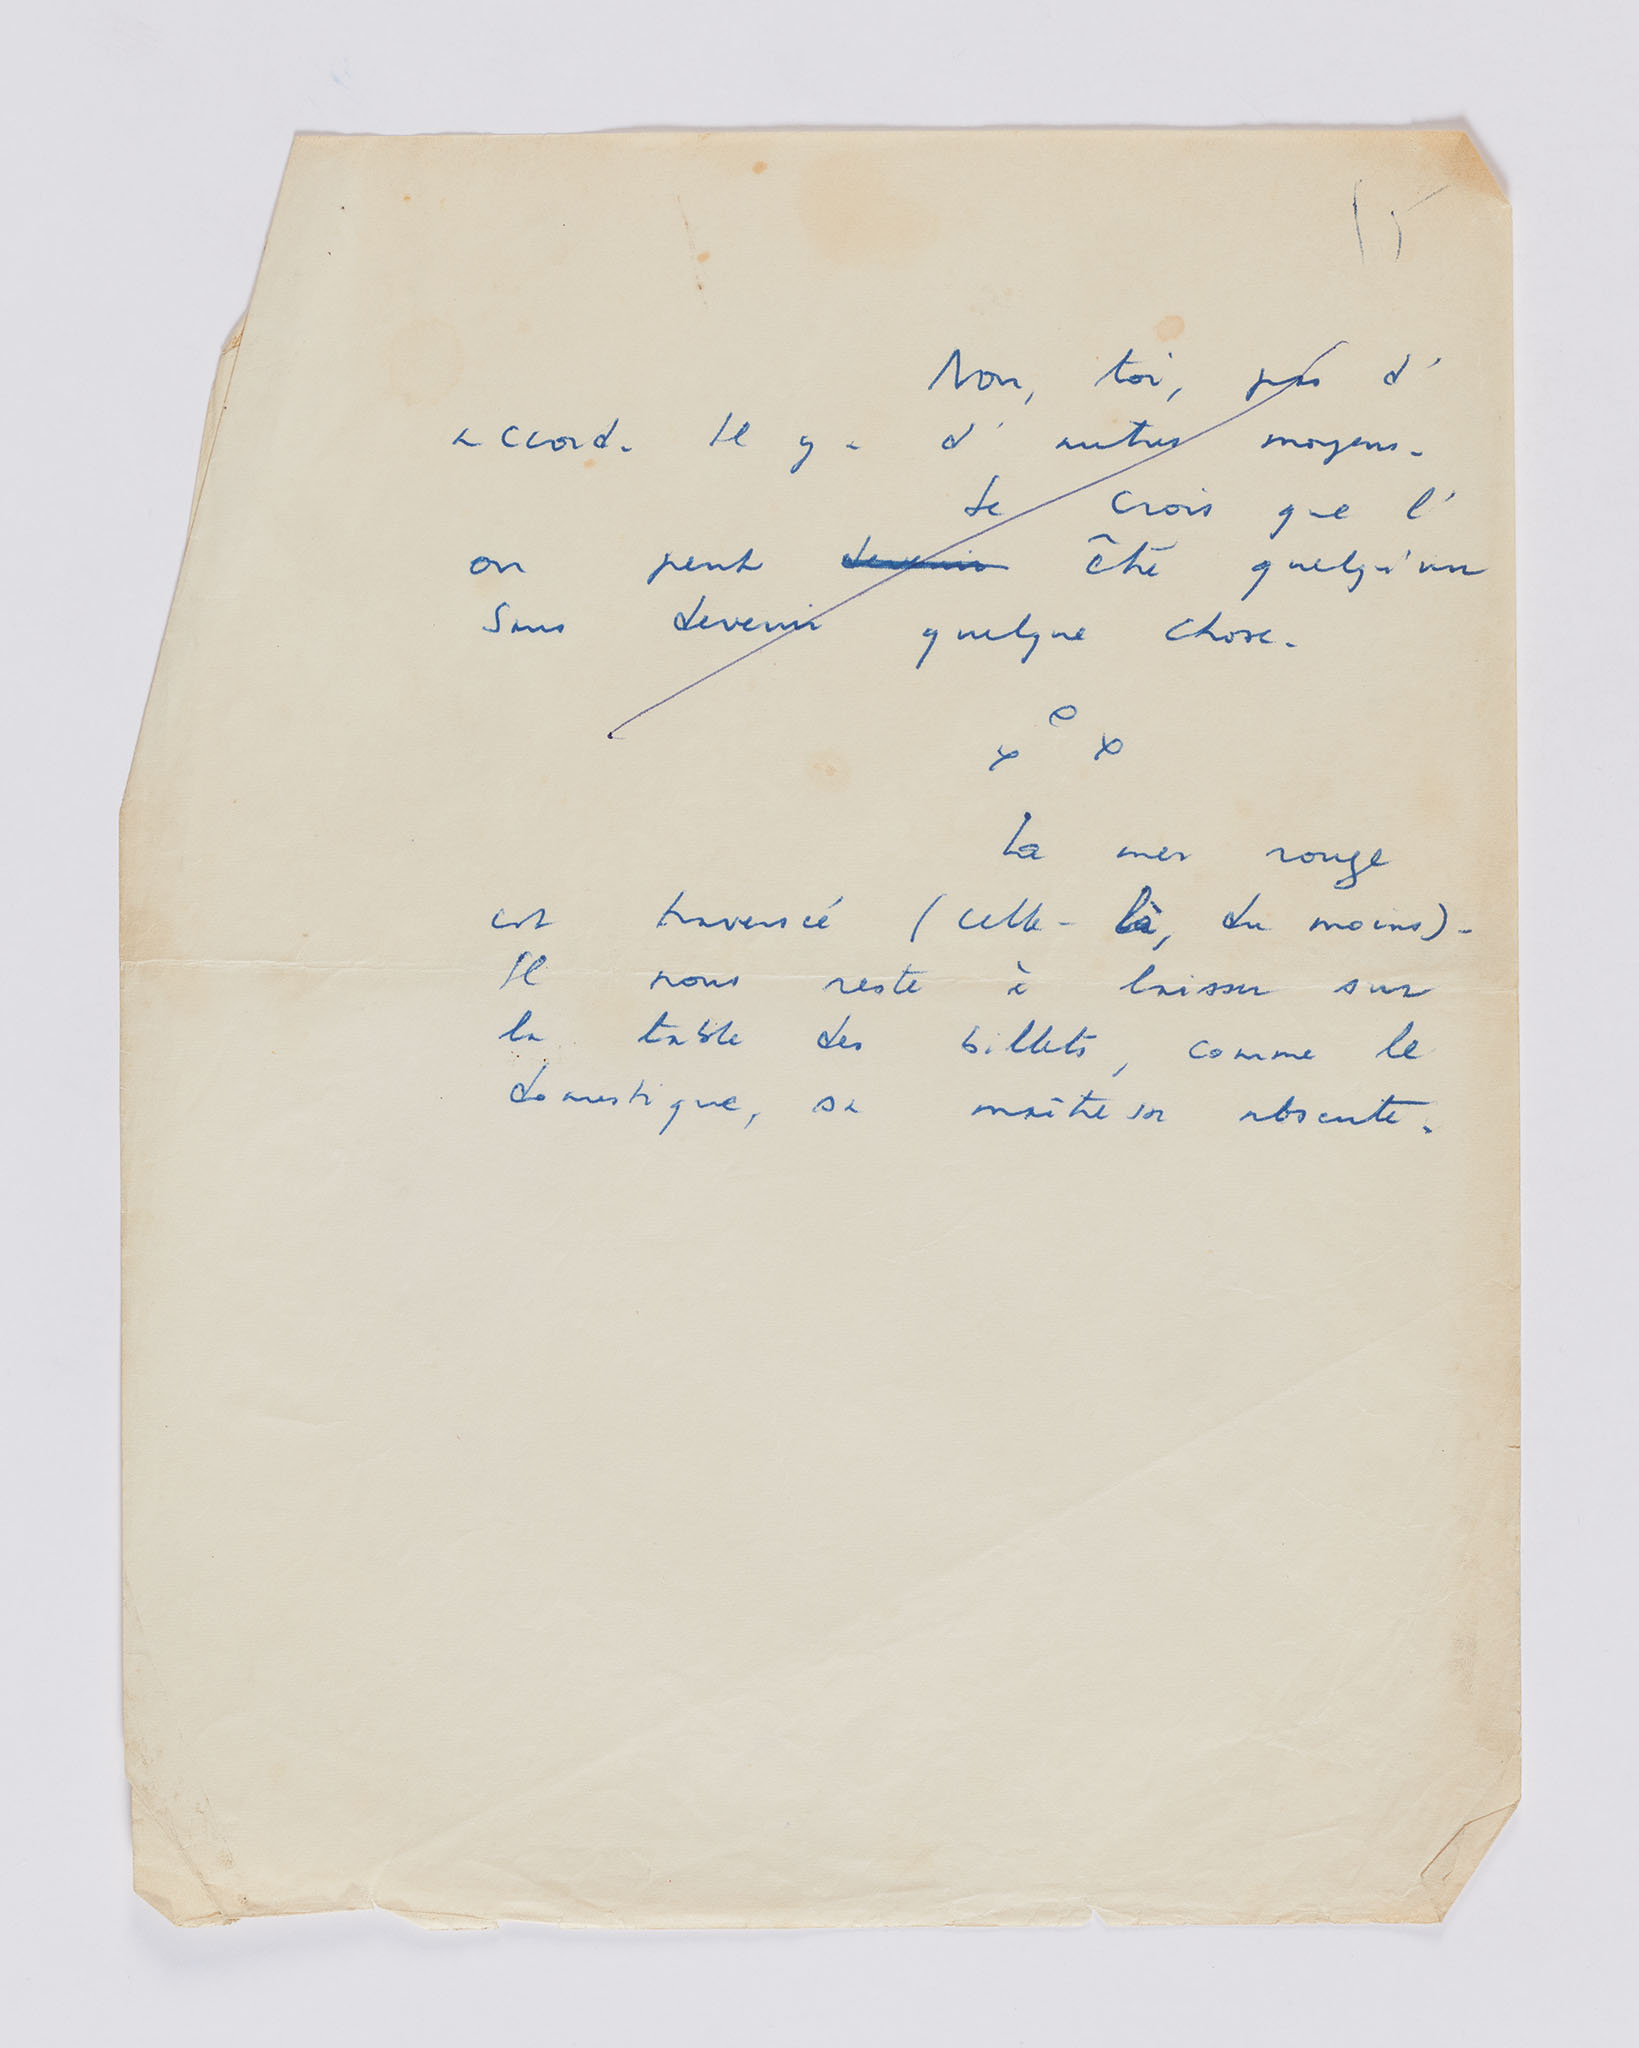 15
Non, toi, pas d'
accord. Il y a d'autres moyens.
Je crois que l'
on peut devenir être quelqu'un
sans devenir quelque chose.
x x x
La mer rouge
est traversée (celle-là, du moins).
Il nous reste à laisser sur
la table des billets, comme le
domestique, sa maîtresse absente.